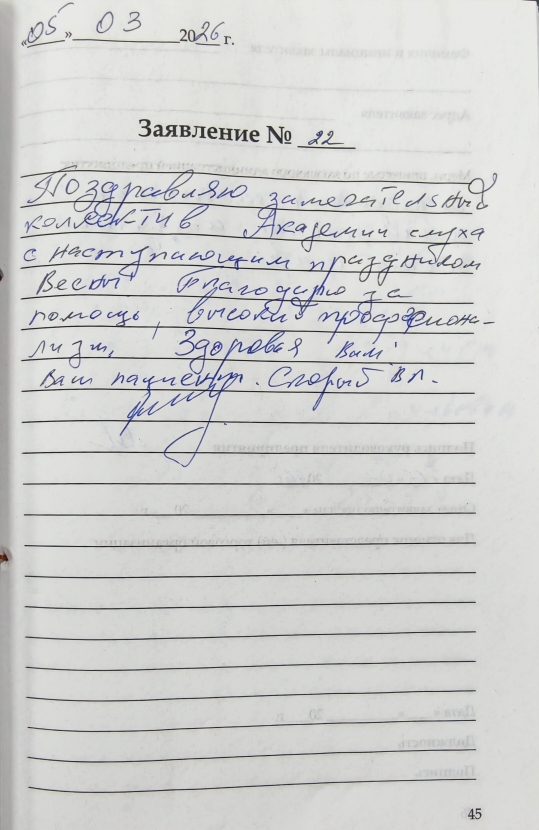 «05» 03 2026 г.
Заявление № 22
Поздравляю замечательный
коллектив Академии слуха
с наступающим праздником
Весны! Благодарю за
помощь, высокий профессиона-
лизм. Здоровья Вам!
Ваш пациент. Спорый Вл.
45